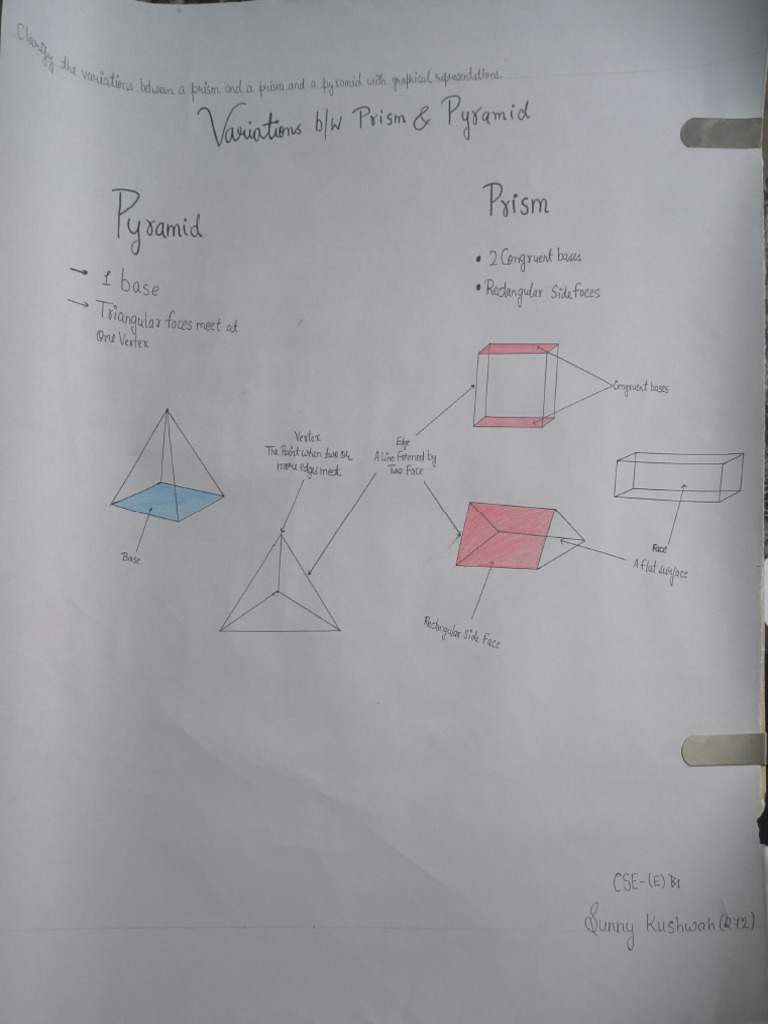 Clarify the variations between a prism and a prism and a pyramid with graphical representations.
Variations b/w Prism & Pyramid
Pyramid
→ 1 base
→ Triangular faces meet at
One Vertex
Prism
• 2 Congruent bases
• Rectangular Side faces
Congruent bases
Vertex
The Point when two or
more edges meet.
Edge
A Line Formed by
Two Face
Base
Face
A flat surface
Rectangular Side Face
CSE-(E) B1
Sunny Kushwah (272)